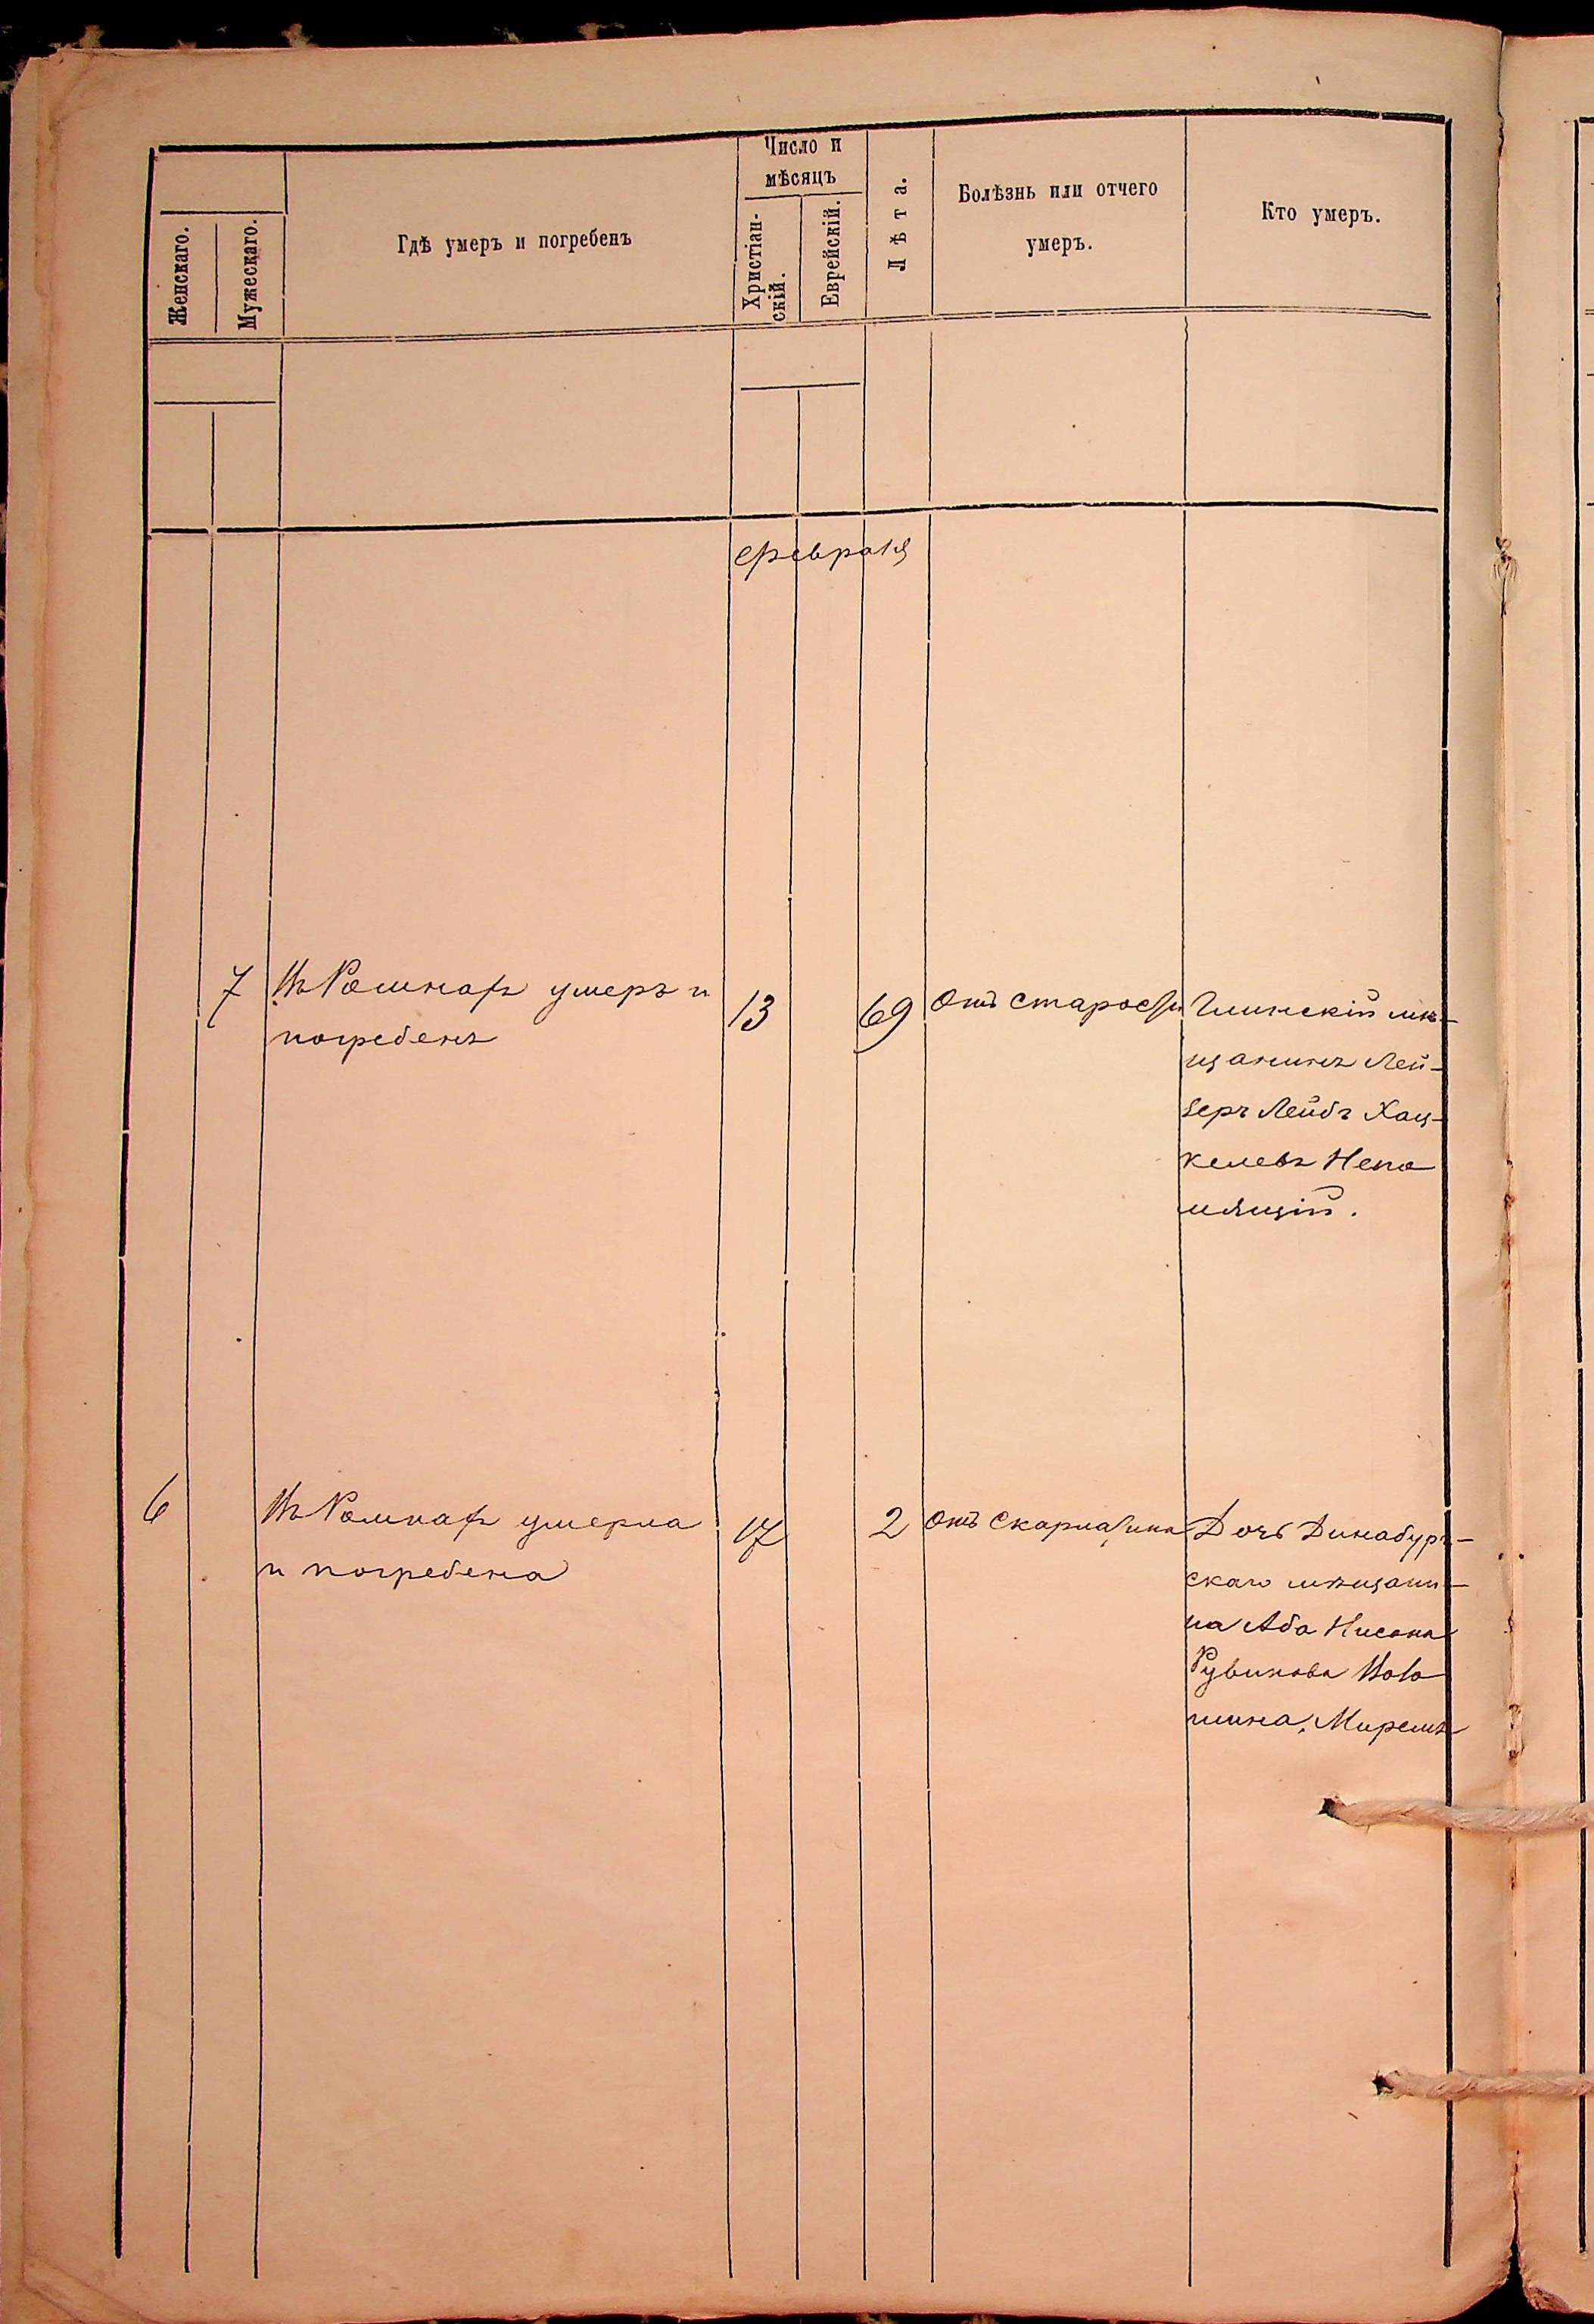 Женскаго.
Мужескаго.
Гдѣ умеръ и погребенъ
Число и
мѣсяцъ
Христіан-
скій.
Еврейскій.
Лѣта.
Болѣзнь или отчего
умеръ.
Кто умеръ.
февраля
7
Въ Ромнахъ умеръ и
погребенъ
13
69
Отъ старости
Глинскій мѣ-
щанинъ Лей-
зеръ Лейбъ Хац-
келевъ Непо
мящій.
6
Въ Ромнахъ умерла
и погребена
17
2
Отъ скарлатины
Дочь Динабург-
скаго мѣщани-
на Аба Нисона
Рувинова
Мирель